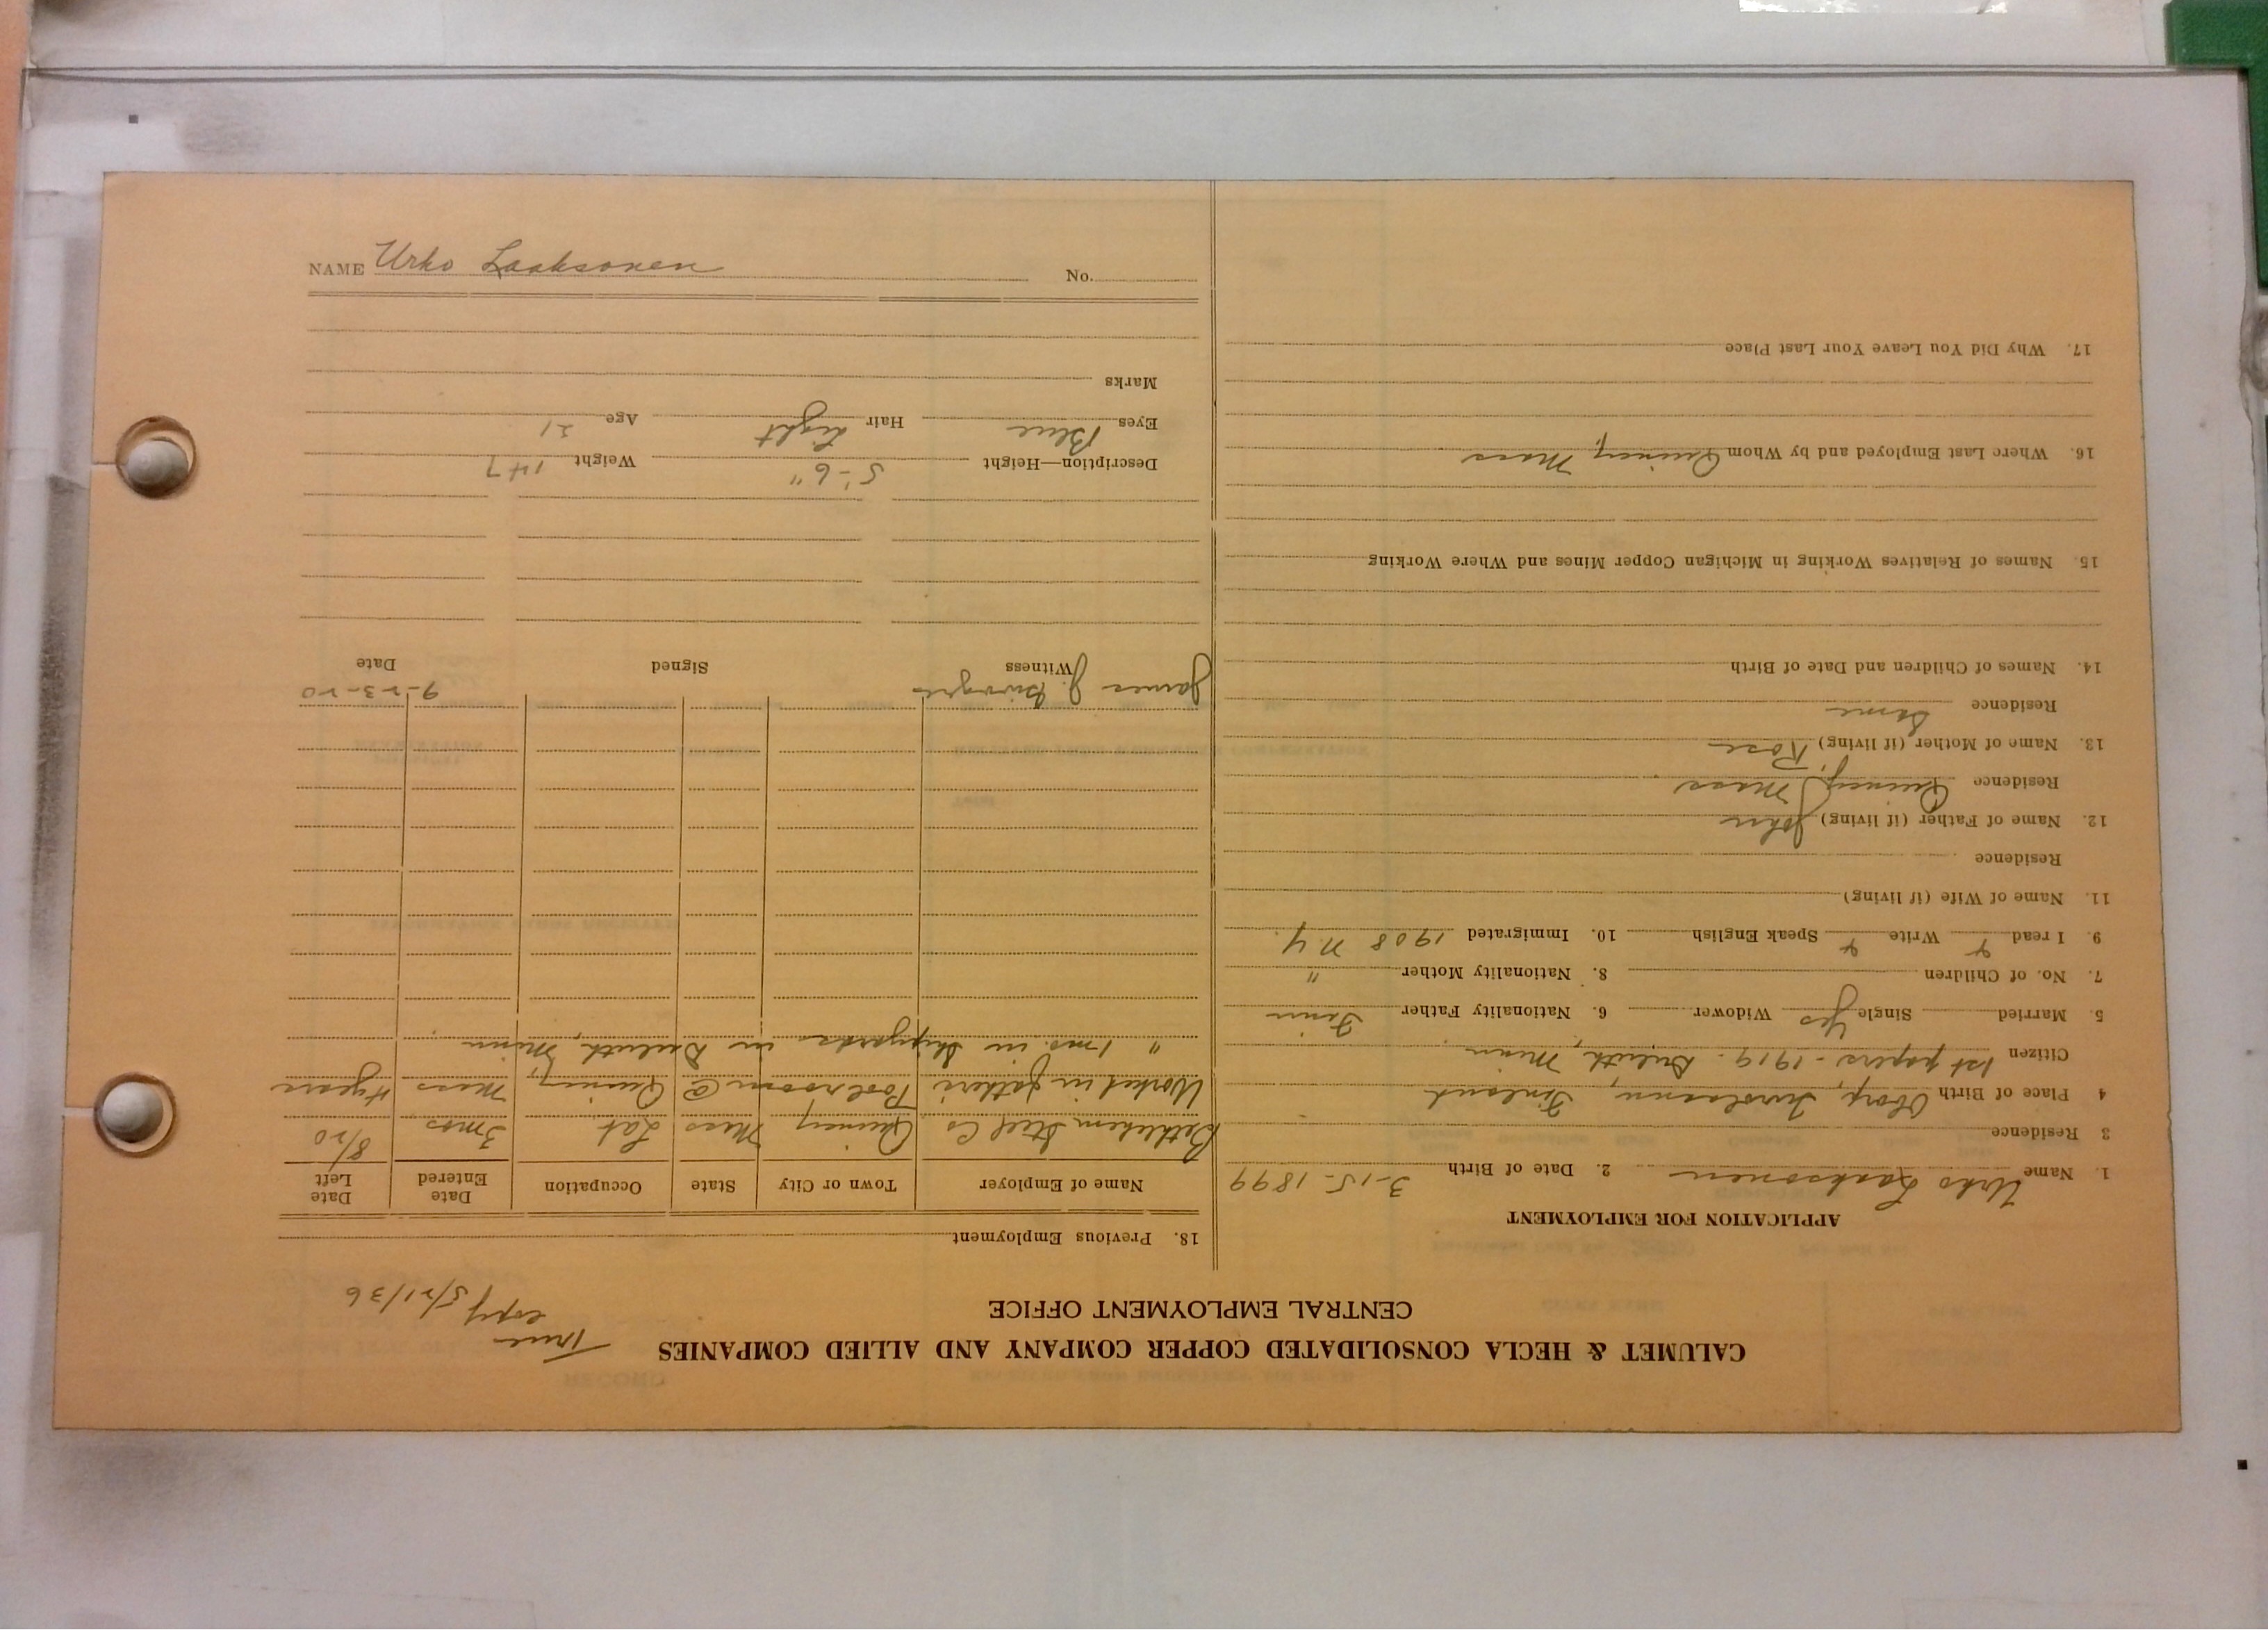 CALUMET & HECLA CONSOLIDATED COPPER COMPANY AND ALLIED COMPANIES
CENTRAL EMPLOYMENT OFFICE
True
copy 5/21/36
APPLICATION FOR EMPLOYMENT
1. Name Urho Laaksonen 2. Date of Birth 3-15-1899
3 Residence
4 Place of Birth Finland
Citizen 1st papers - 1919 - Duluth, Minn
5. Married Single Yes Widower 6. Nationality Father Finn
7. No. of Children 8. Nationality Mother "
9. I read Write Speak English 10. Immigrated 1908 N.Y.
11. Name of Wife (if living)
Residence
12. Name of Father (if living) John
Residence Quincy, Mass
13. Name of Mother (if living) Rosa
Residence Same
14. Names of Children and Date of Birth
15. Names of Relatives Working in Michigan Copper Mines and Where Working
16. Where Last Employed and by Whom Quincy, Mass
17. Why Did You Leave Your Last Place
18. Previous Employment
Name of Employer Town or City State Occupation Date Entered Date Left
Bethlehem Steel Co Quincy Mass Lab 3 mos 8/20
Worked in fathers Poolroom @ Quincy, Mass 4 years
" 1 mo. in Shipyards in Duluth, Minn
James J. 9-23-20
Witness Signed Date
Description—Height 5'-6" Weight 147
Eyes Blue Hair Light Age 21
Marks
NAME Urho Laaksonen No.